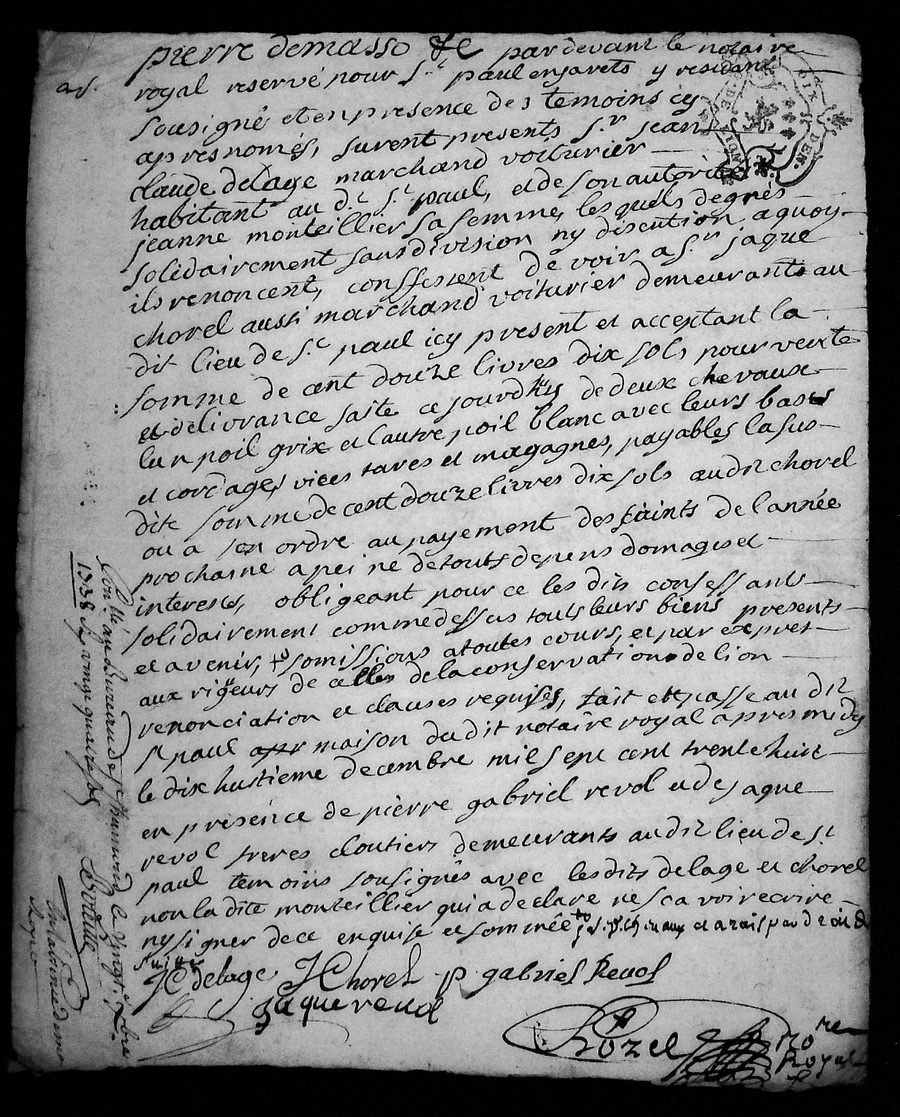 pierre demasso &c par devant le notaire
royal reservé pour St paul en jarets y residant
sousigné et en presence des temoins icy
apres només, furent presents Sr jean
claude delage marchand voiturier
habitant au dt St paul, et de son autorité
jeanne monteillier sa femme, les quels de grés
solidairement sans division ny discution a quoy
ils renoncent, confessent de voir a Sr jaque
chorel aussi marchand voiturier demeurants au
dit lieu de St paul icy present et acceptant la
somme de cent douze livres dix sols pour vente
et delivrance faite ce jourdhuy de deux chevaux
lun poil grix et l'autre poil blanc avec leurs basts
et cordages, vices tares et magagnes, payables la sus
dite somme de cent douze livres dix sols audit chorel
ou a son ordre au payement des saints de l'année
prochaine a peine de touts depens domages et
interests, obligeant pour ce les dits confessants
solidairement comme dessus touts leurs biens presents
et avenir, somissions a toutes cours, et par expret
aux rigueurs de celles de la conservation de lion
renonciation et clauses requises, fait et passe au dit
St paul maison dudit notaire royal apres midy
le dix huitieme decembre mil sept cent trente huit
en presence de pierre gabriel revol et de jaque
revol freres cloutiers demeurants audit lieu de St
paul temoins sousignés avec lesdits delage et chorel
non la dite monteillier qui a declare ne sca voir ecrire
ny signer de ce enquise et sommée
JC delage J Chorel p gabriel Revol
jaque revol
Rozel nore
Royal
Conllé au bureau de st chamond le vingt xbre
1738